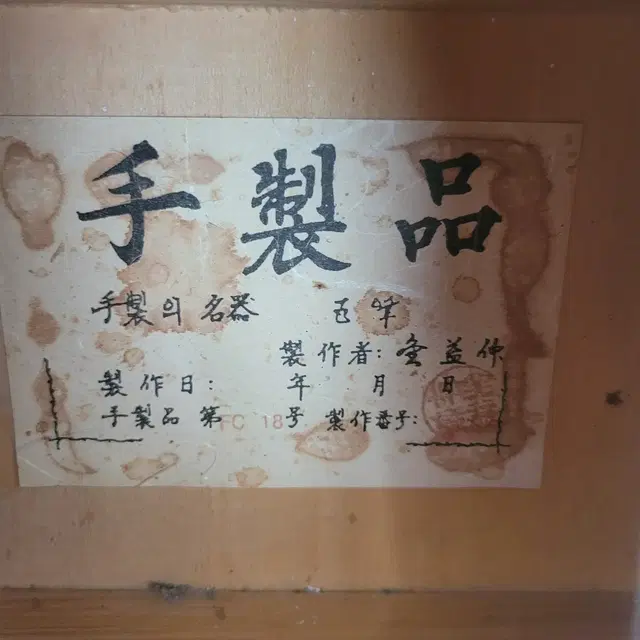 手製品
手製의 名器
製作者: 益
製作日: 年 月 日
手製品 第 FC 18号 製作番号: